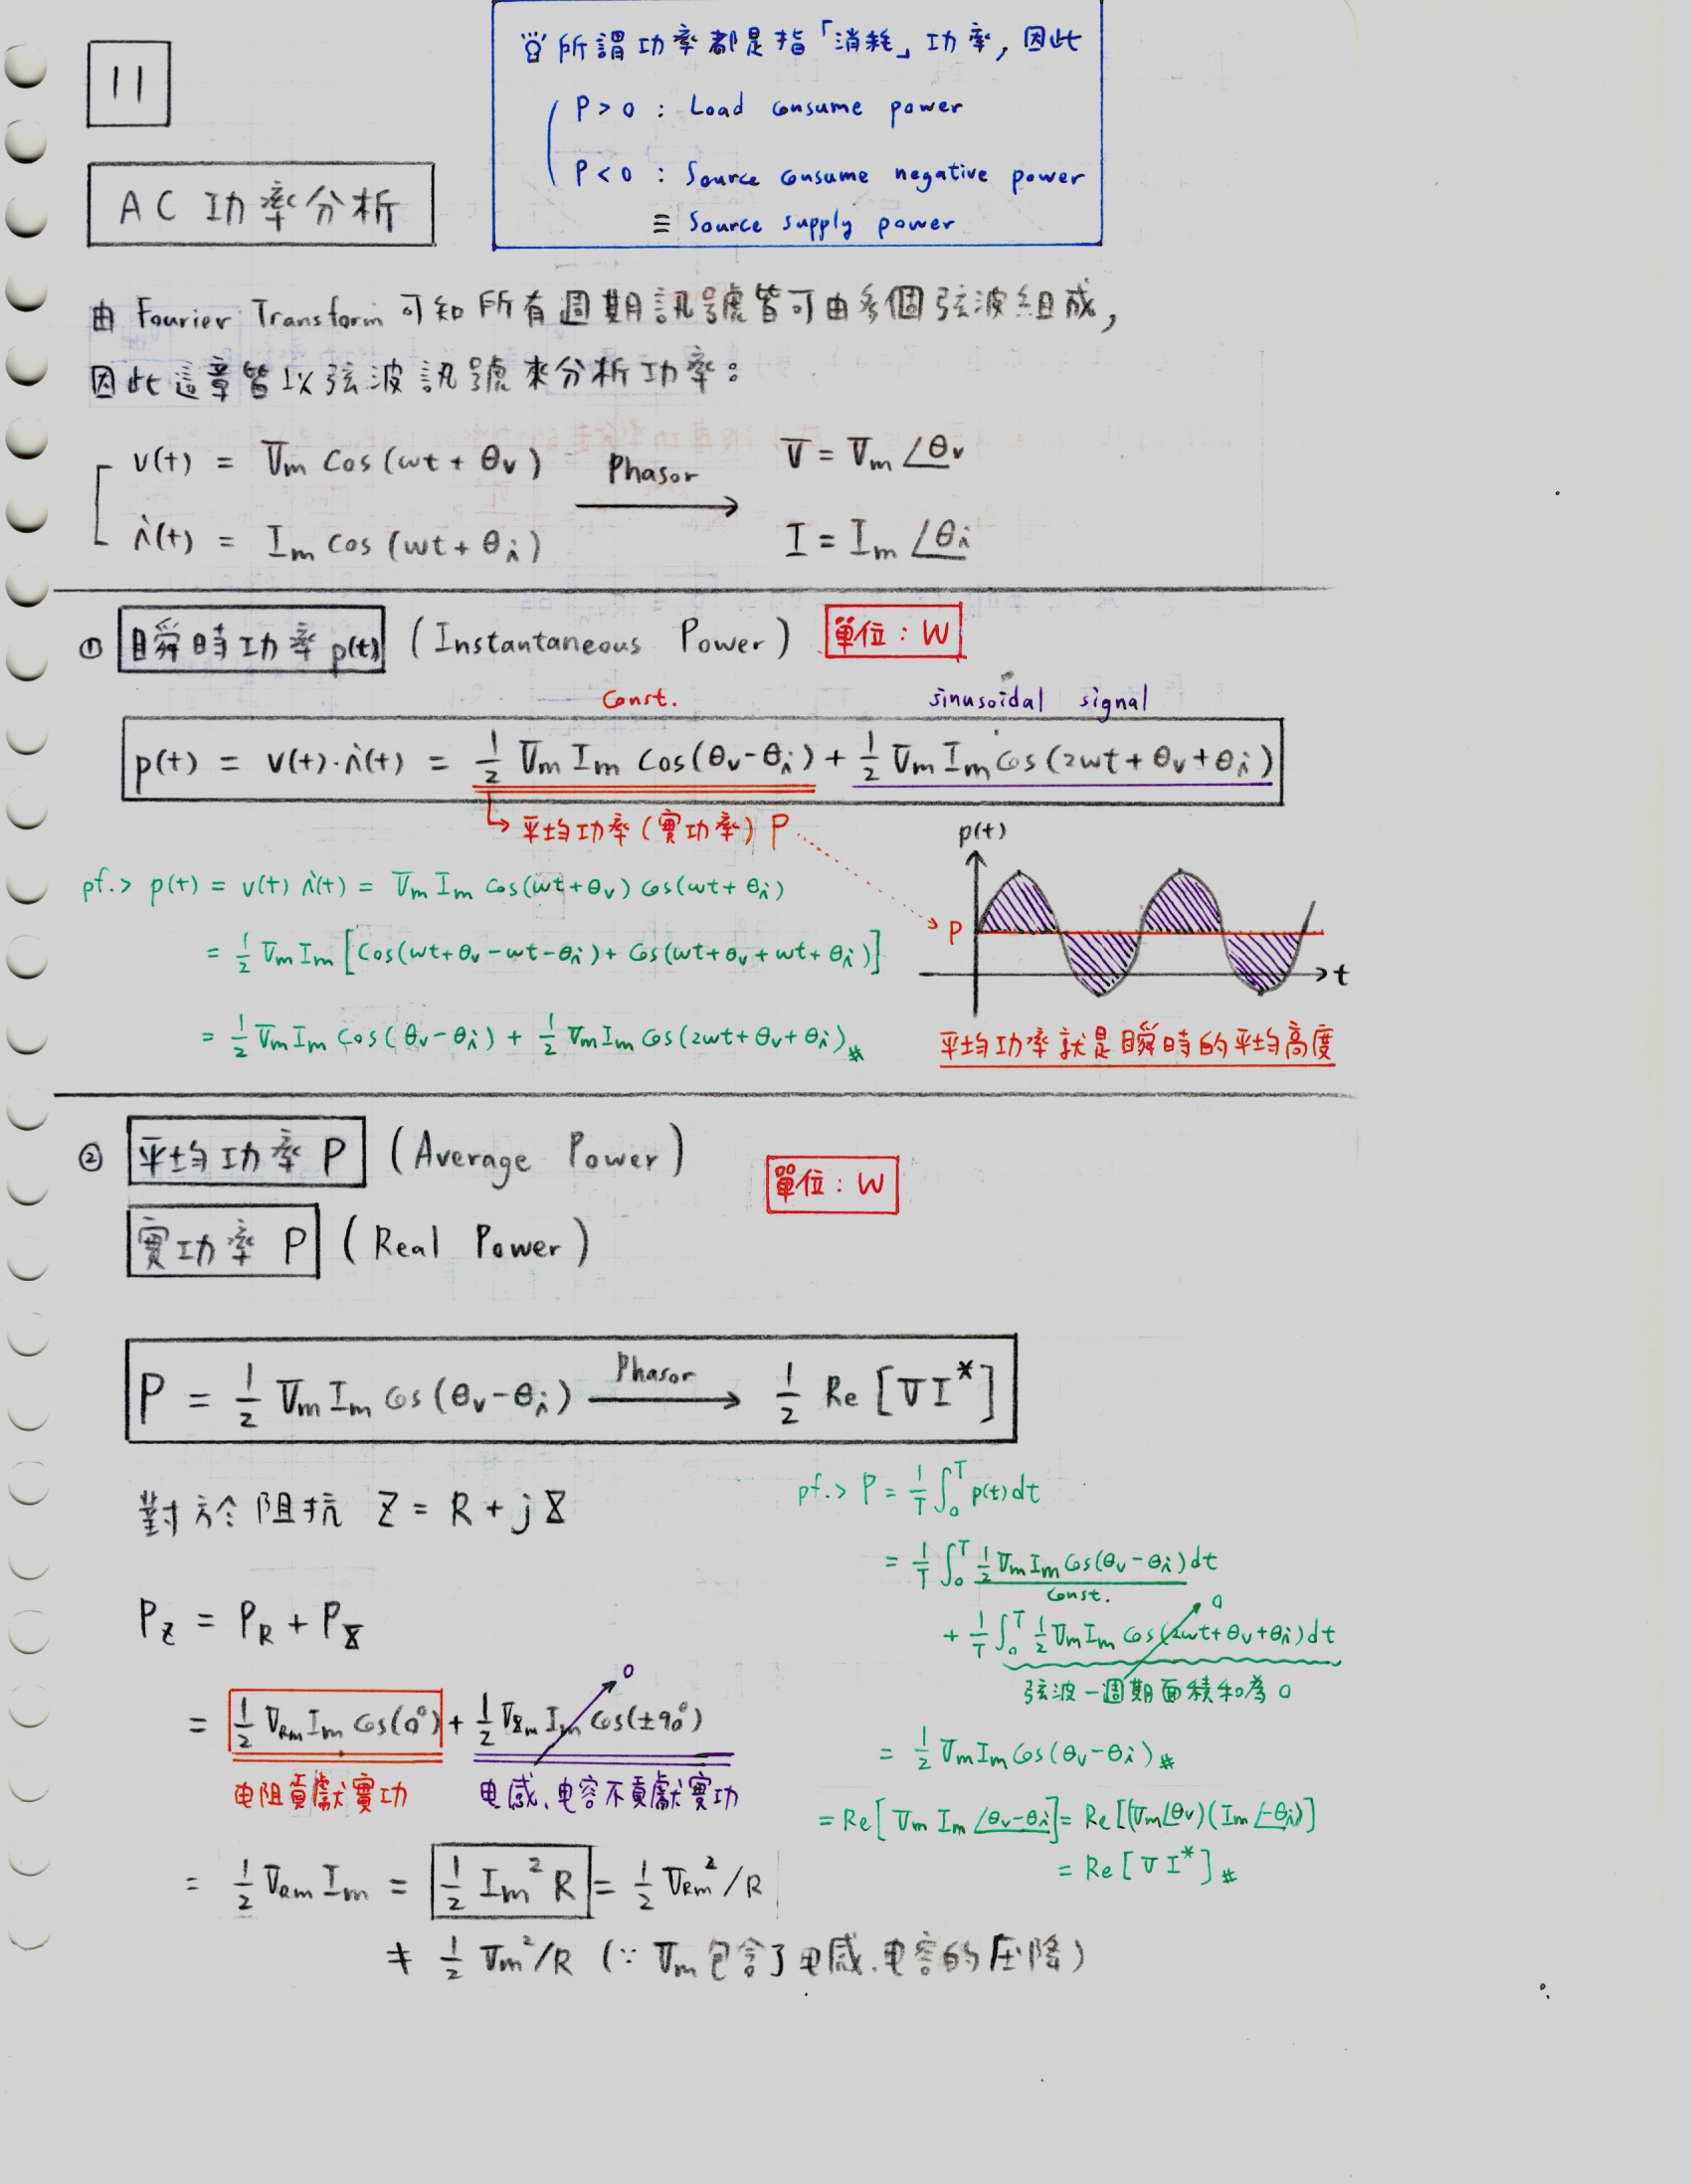 11
AC 功率分析
所謂功率都是指「消耗」功率, 因此
P > 0 : Load consume power
P < 0 : Source consume negative power
≡ Source supply power
由 Fourier Transform 可知所有週期訊號皆可由多個弦波組成,
因此這章皆以弦波訊號來分析功率:
v(t) = Vm cos(ωt + θv) Phasor → V = Vm ∠θv
i(t) = Im cos(ωt + θi) I = Im ∠θi
① 瞬時功率 p(t) (Instantaneous Power) 單位: W
const. sinusoidal signal
p(t) = v(t)·i(t) = 1/2 Vm Im cos(θv-θi) + 1/2 Vm Im cos(2ωt + θv + θi)
↳ 平均功率(實功率) P
pf.> p(t) = v(t) i(t) = Vm Im cos(ωt+θv) cos(ωt+θi)
= 1/2 Vm Im [cos(ωt+θv-ωt-θi) + cos(ωt+θv+ωt+θi)]
= 1/2 Vm Im cos(θv-θi) + 1/2 Vm Im cos(2ωt+θv+θi)#
p(t)
P
t
平均功率就是瞬時的平均高度
② 平均功率 P (Average Power) 單位: W
實功率 P (Real Power)
P = 1/2 Vm Im cos(θv-θi) Phasor → 1/2 Re[VI*]
對於阻抗 Z = R + jX
PZ = PR + PX
= 1/2 VRm Im cos(0°) + 1/2 VXm Im cos(±90°) 0
电阻貢獻實功 电感、电容不貢獻實功
= 1/2 VRm Im = 1/2 Im² R = 1/2 VRm²/R
≠ 1/2 Vm²/R (∵ Vm 包含了电感、电容的压降)
pf.> P = 1/T ∫₀ᵀ p(t) dt
= 1/T ∫₀ᵀ 1/2 Vm Im cos(θv-θi) dt
const. 0
+ 1/T ∫₀ᵀ 1/2 Vm Im cos(2ωt+θv+θi) dt
弦波一週期面積和為 0
= 1/2 Vm Im cos(θv-θi)#
= Re[Vm Im ∠θv-θi] = Re[(Vm∠θv)(Im∠-θi)]
= Re[VI*]#